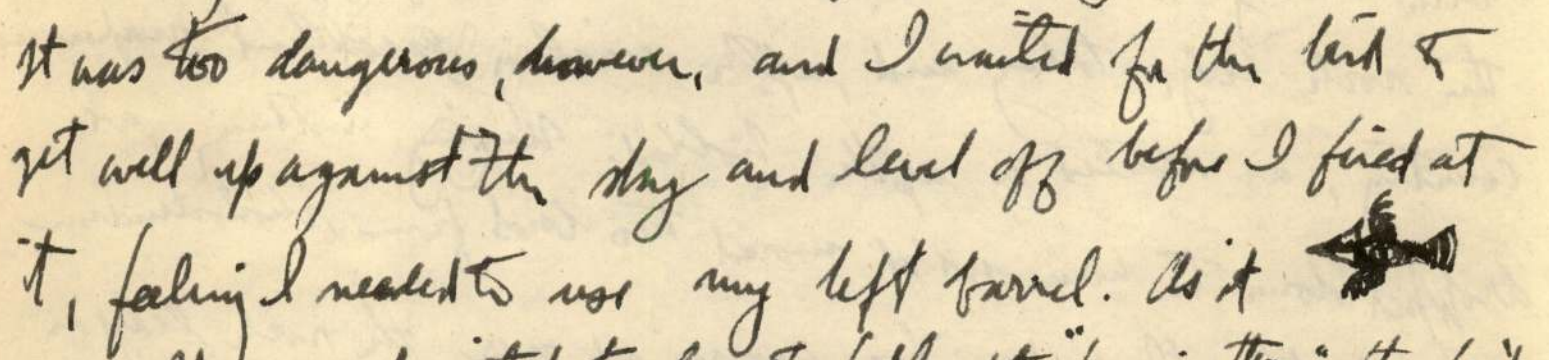 It was too dangerous, however, and I waited for the bird to
get well up against the sky and level off before I fired at
it, feeling I needed to use my left barrel. As it